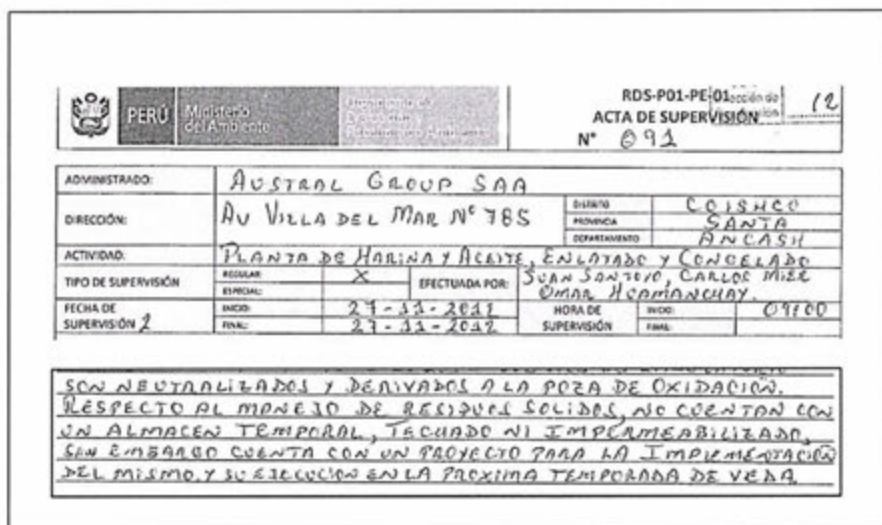 PERÚ Ministerio del Ambiente
RDS-P01-PE-01
12
ACTA DE SUPERVISIÓN
N° 091
ADMINISTRADO: AUSTRAL GROUP SAA
DIRECCIÓN: AV VILLA DEL MAR N° 785
DISTRITO COISHCO
PROVINCIA SANTA
DEPARTAMENTO ANCASH
ACTIVIDAD: PLANTA DE HARINA Y ACEITE, ENLATADO Y CONGELADO
TIPO DE SUPERVISIÓN REGULAR: X
ESPECIAL:
EFECTUADA POR: JUAN SANTOYO, CARLOS
OMAR HUAMANCHAY.
FECHA DE SUPERVISIÓN
INICIO: 27-11-2012
FINAL: 27-11-2012
HORA DE SUPERVISIÓN INICIO: 09:00
FINAL:
SON NEUTRALIZADOS Y DERIVADOS A LA POZA DE OXIDACIÓN.
RESPECTO AL MANEJO DE RESIDUOS SOLIDOS, NO CUENTAN CON
UN ALMACEN TEMPORAL, TECHADO NI IMPERMEABILIZADO,
SIN EMBARGO CUENTA CON UN PROYECTO PARA LA IMPLEMENTACIÓN
DEL MISMO, Y SU EJECUCIÓN EN LA PROXIMA TEMPORADA DE VEDA